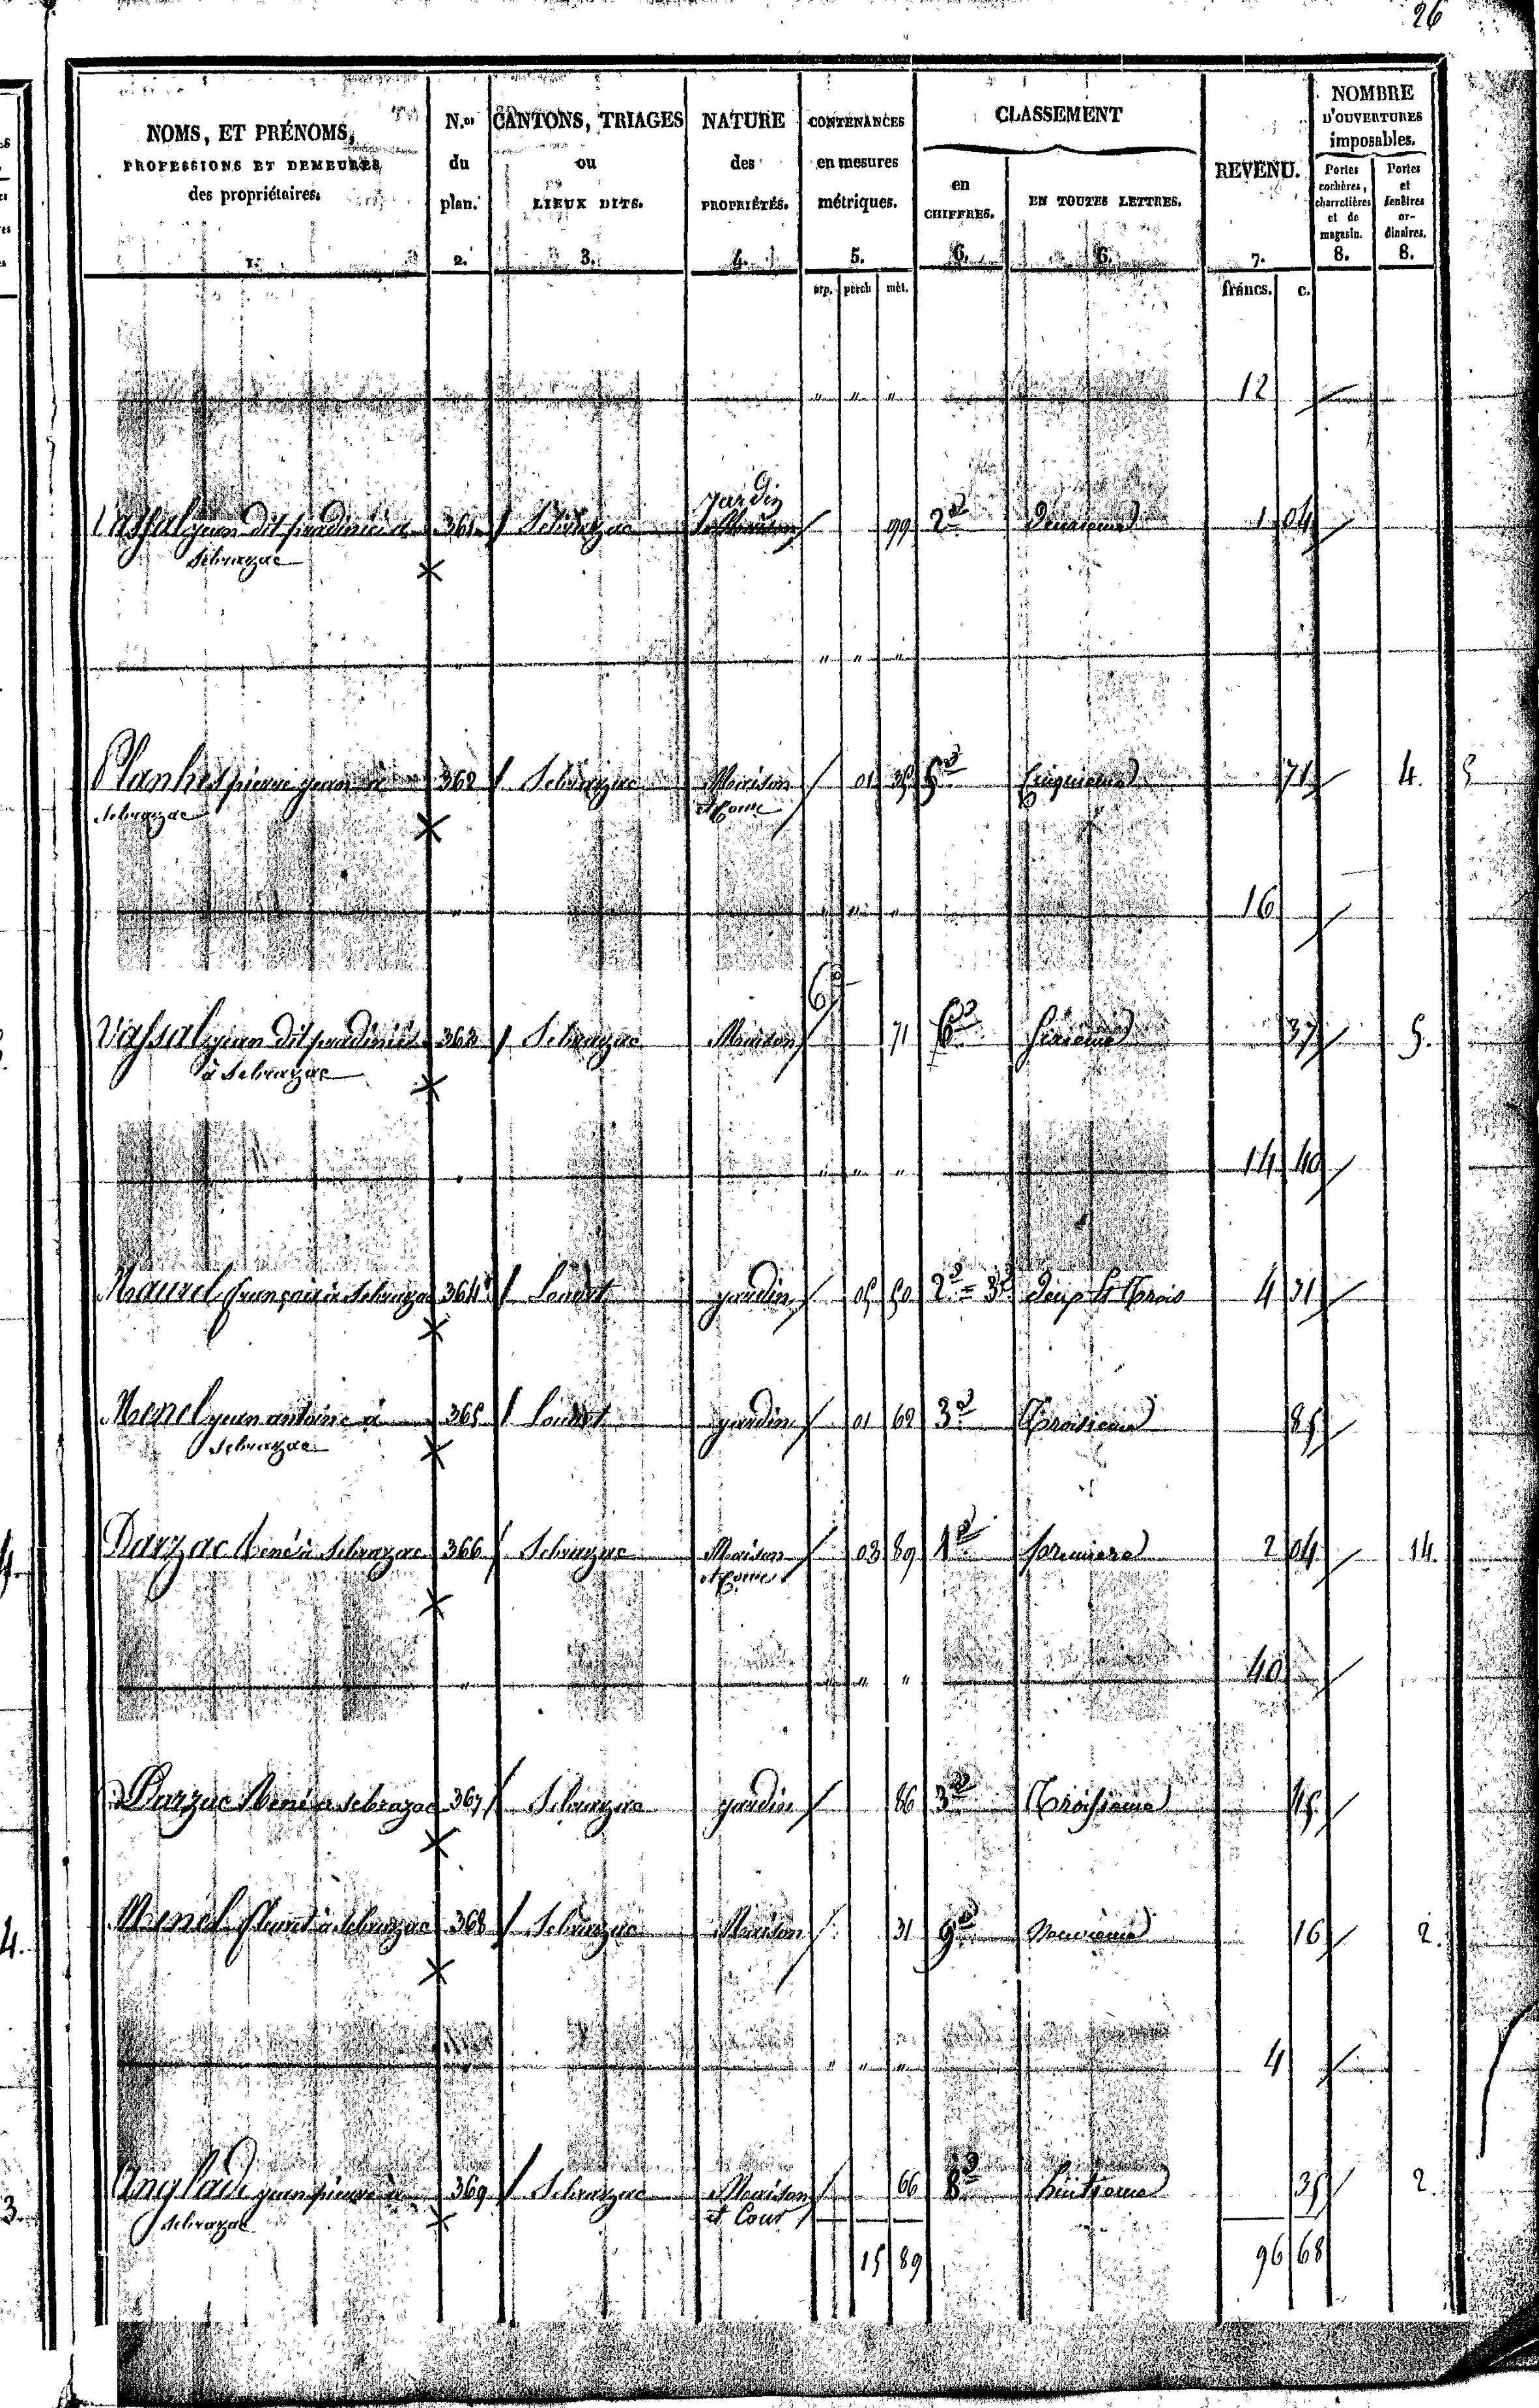 26
NOMS, ET PRÉNOMS,
PROFESSIONS ET DEMEURES
des propriétaires.
1.
N.os
du
plan.
2.
CANTONS, TRIAGES
ou
LIEUX DITS.
3.
NATURE
des
PROPRIÉTÉS.
4.
CONTENANCES
en mesures
métriques.
5.
CLASSEMENT
en
CHIFFRES.
6.
EN TOUTES LETTRES.
6.
REVENU.
7.
NOMBRE
D'OUVERTURES
imposables.
Portes
cochères,
charretières
et de
magasin.
8.
Portes
et
fenêtres
or-
dinaires.
8.
arp. perch mèt. francs. c.
" " " 12
Jardin
Vassal jean dit 361 Sebrazac 99 2e Deuxieme 1 04
Sebrazac
" " " "
Planhes pierre jean à 362 Sebrazac Maison 01 5e Cinquieme 71 4.
Sebrazac et Cour
" " " " 16
Vassal jean dit 363 Sebrazac Maison 71 6e Sixieme 37 5.
à Sebrazac
" " " " 14 40
Maurel françois à Sebrazac 364 jardin 05 50 2e = 3e Deux et trois 4 31
jean antoine à 365 jardin 01 62 3e Troisieme 85
Sebrazac
Darzac à Sebrazac 366 Sebrazac Maison 03 89 1e premiere 2 04 14.
et Cour
" " " " 40
Darzac à Sebrazac 367 Sebrazac jardin 86 3e Troisieme 45
à Sebrazac 368 Sebrazac Maison 31 9e Neuvieme 16 2.
" " " 4
Anglade jean pierre à 369 Sebrazac Maison 66 8e huitieme 35 2.
Sebrazac et Cour
15 89 96 68